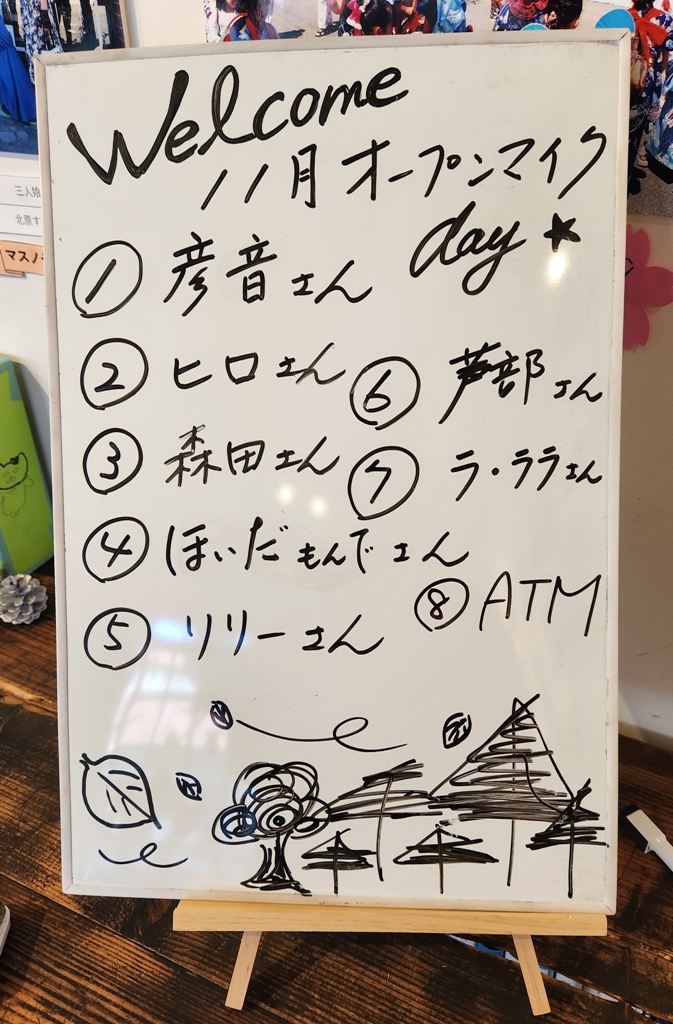 Welcome
11月オープンマイク
day★
① 彦音さん
② ヒロさん
③ 森田さん
④ ほいだもんでさん
⑤ リリーさん
⑥ 芦部さん
⑦ ラ・ララさん
⑧ ATM
三人娘
北原す
マスノ